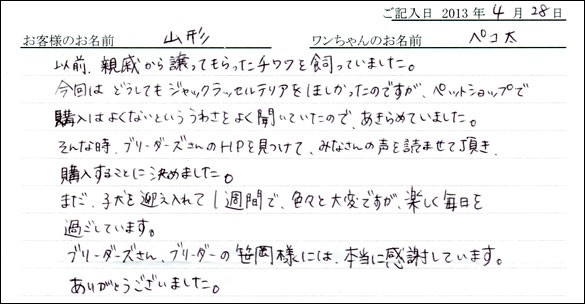 ご記入日 2013 年 4 月 28 日
お客様のお名前 山形 ワンちゃんのお名前 ペコ太
以前、親戚から譲ってもらったチワワを飼っていました。
今回は どうしてもジャックラッセルテリアをほしかったのですが、ペットショップで
購入はよくないといううわさをよく聞いていたので、あきらめていました。
そんな時、ブリーダーズさんのHPを見つけて、みなさんの声を読ませて頂き、
購入することに決めました。
まだ、子犬を迎え入れて1週間で、色々と大変ですが、楽しく毎日を
過ごしています。
ブリーダーズさん、ブリーダーの笹岡様には、本当に感謝しています。
ありがとうございました。